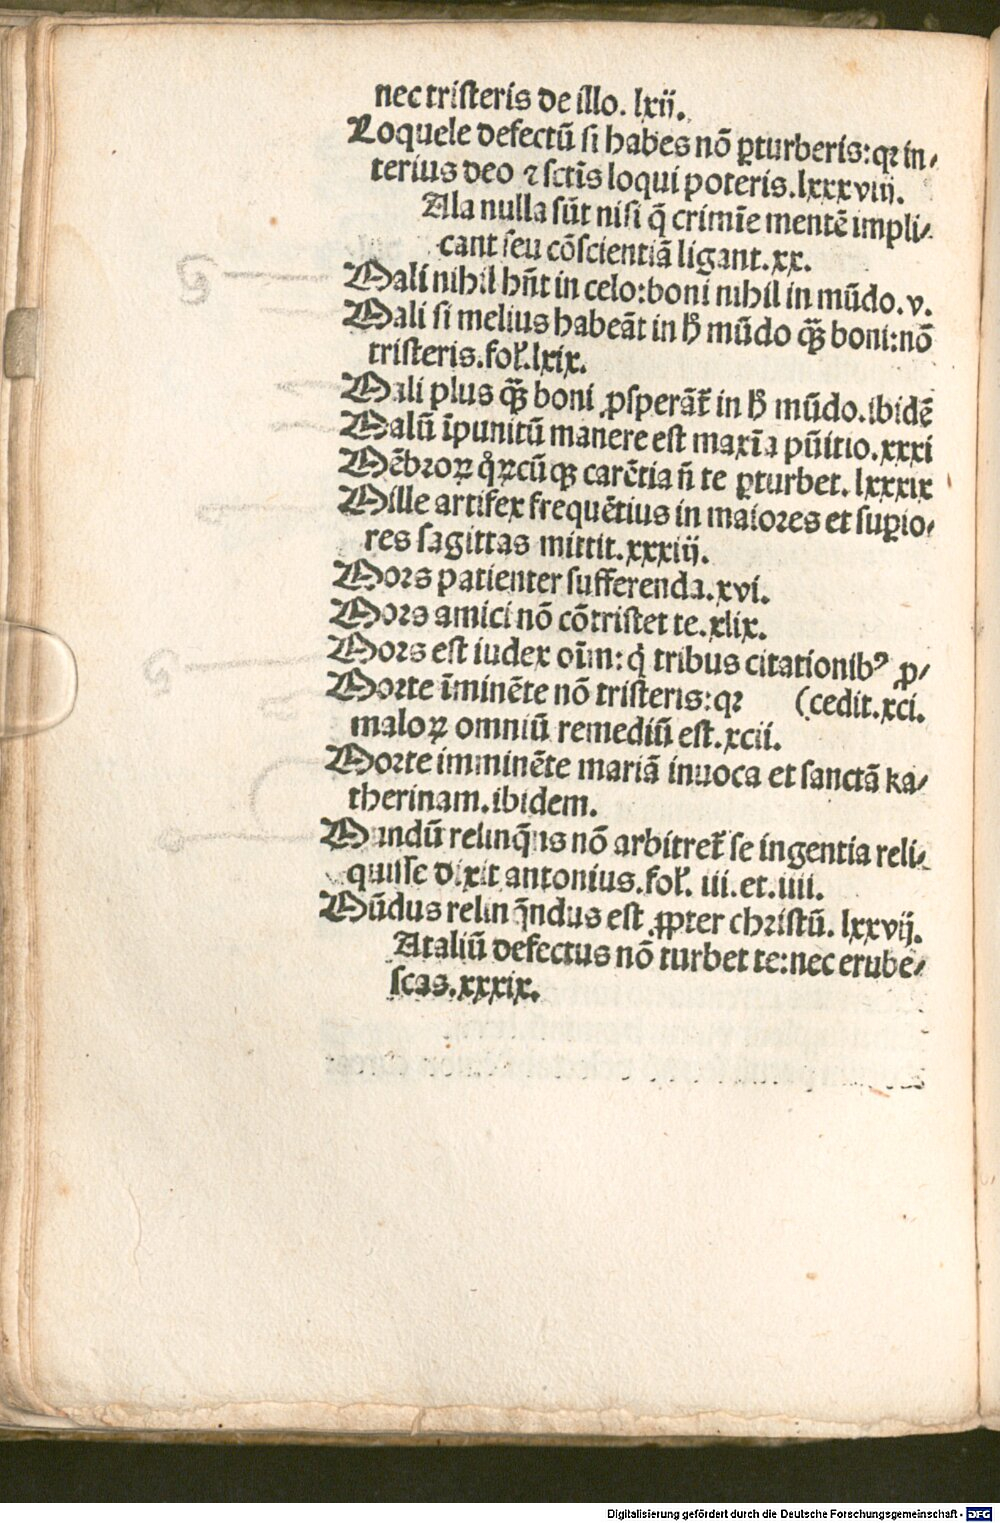 nec tristeris de illo. lxij.
Loquele defectū si habes nō ꝑturberis:qꝛ in⸗
terius deo ⁊ sctīs loqui poteris.lxxxviij.
Ala nulla sūt nisi q̄ crimīe mentē impli⸗
cant seu cōscientiā ligant.xx.
Mali nihil hn̄t in celo:boni nihil in mūdo.v.
Mali si melius habeāt in hͦ mūdo qꝫ̄ boni:nō
tristeris.foł.lxix.
Mali plus qꝫ̄ boni ꝓsperāt̃ in hͦ mūdo.ibidē
Malū īpunitū manere est maxīa pūitio.xxxi
Mēbroꝝ qͦꝝcūqꝫ carētia n̄ te ꝑturbet. lxxxix
Mille artifex frequētius in maiores et supio⸗
res sagittas mittit.xxxiij.
Mors patienter sufferenda.xvi.
Mors amici nō cōtristet te.xlix.
Mors est iudex oīm: q̇ tribus citationibꝰ ꝓ⸗
Morte īminēte nō tristeris:qꝛ (cedit.xci.
maloꝝ omniū remediū est.xcii.
Morte imminēte mariā inuoca et sanctā ka⸗
therinam.ibidem.
Mundū relinq̄ns nō arbitret̃ se ingentia reli⸗
quisse dixit antonius.foł. iii.et.iiii.
Mūdus relinq̄ndus est ꝓpter christū. lxxvij.
Ataliū defectus nō turbet te:nec erube⸗
scas.xxxix.
Digitalisierung gefördert durch die Deutsche Forschungsgemeinschaft - DFG